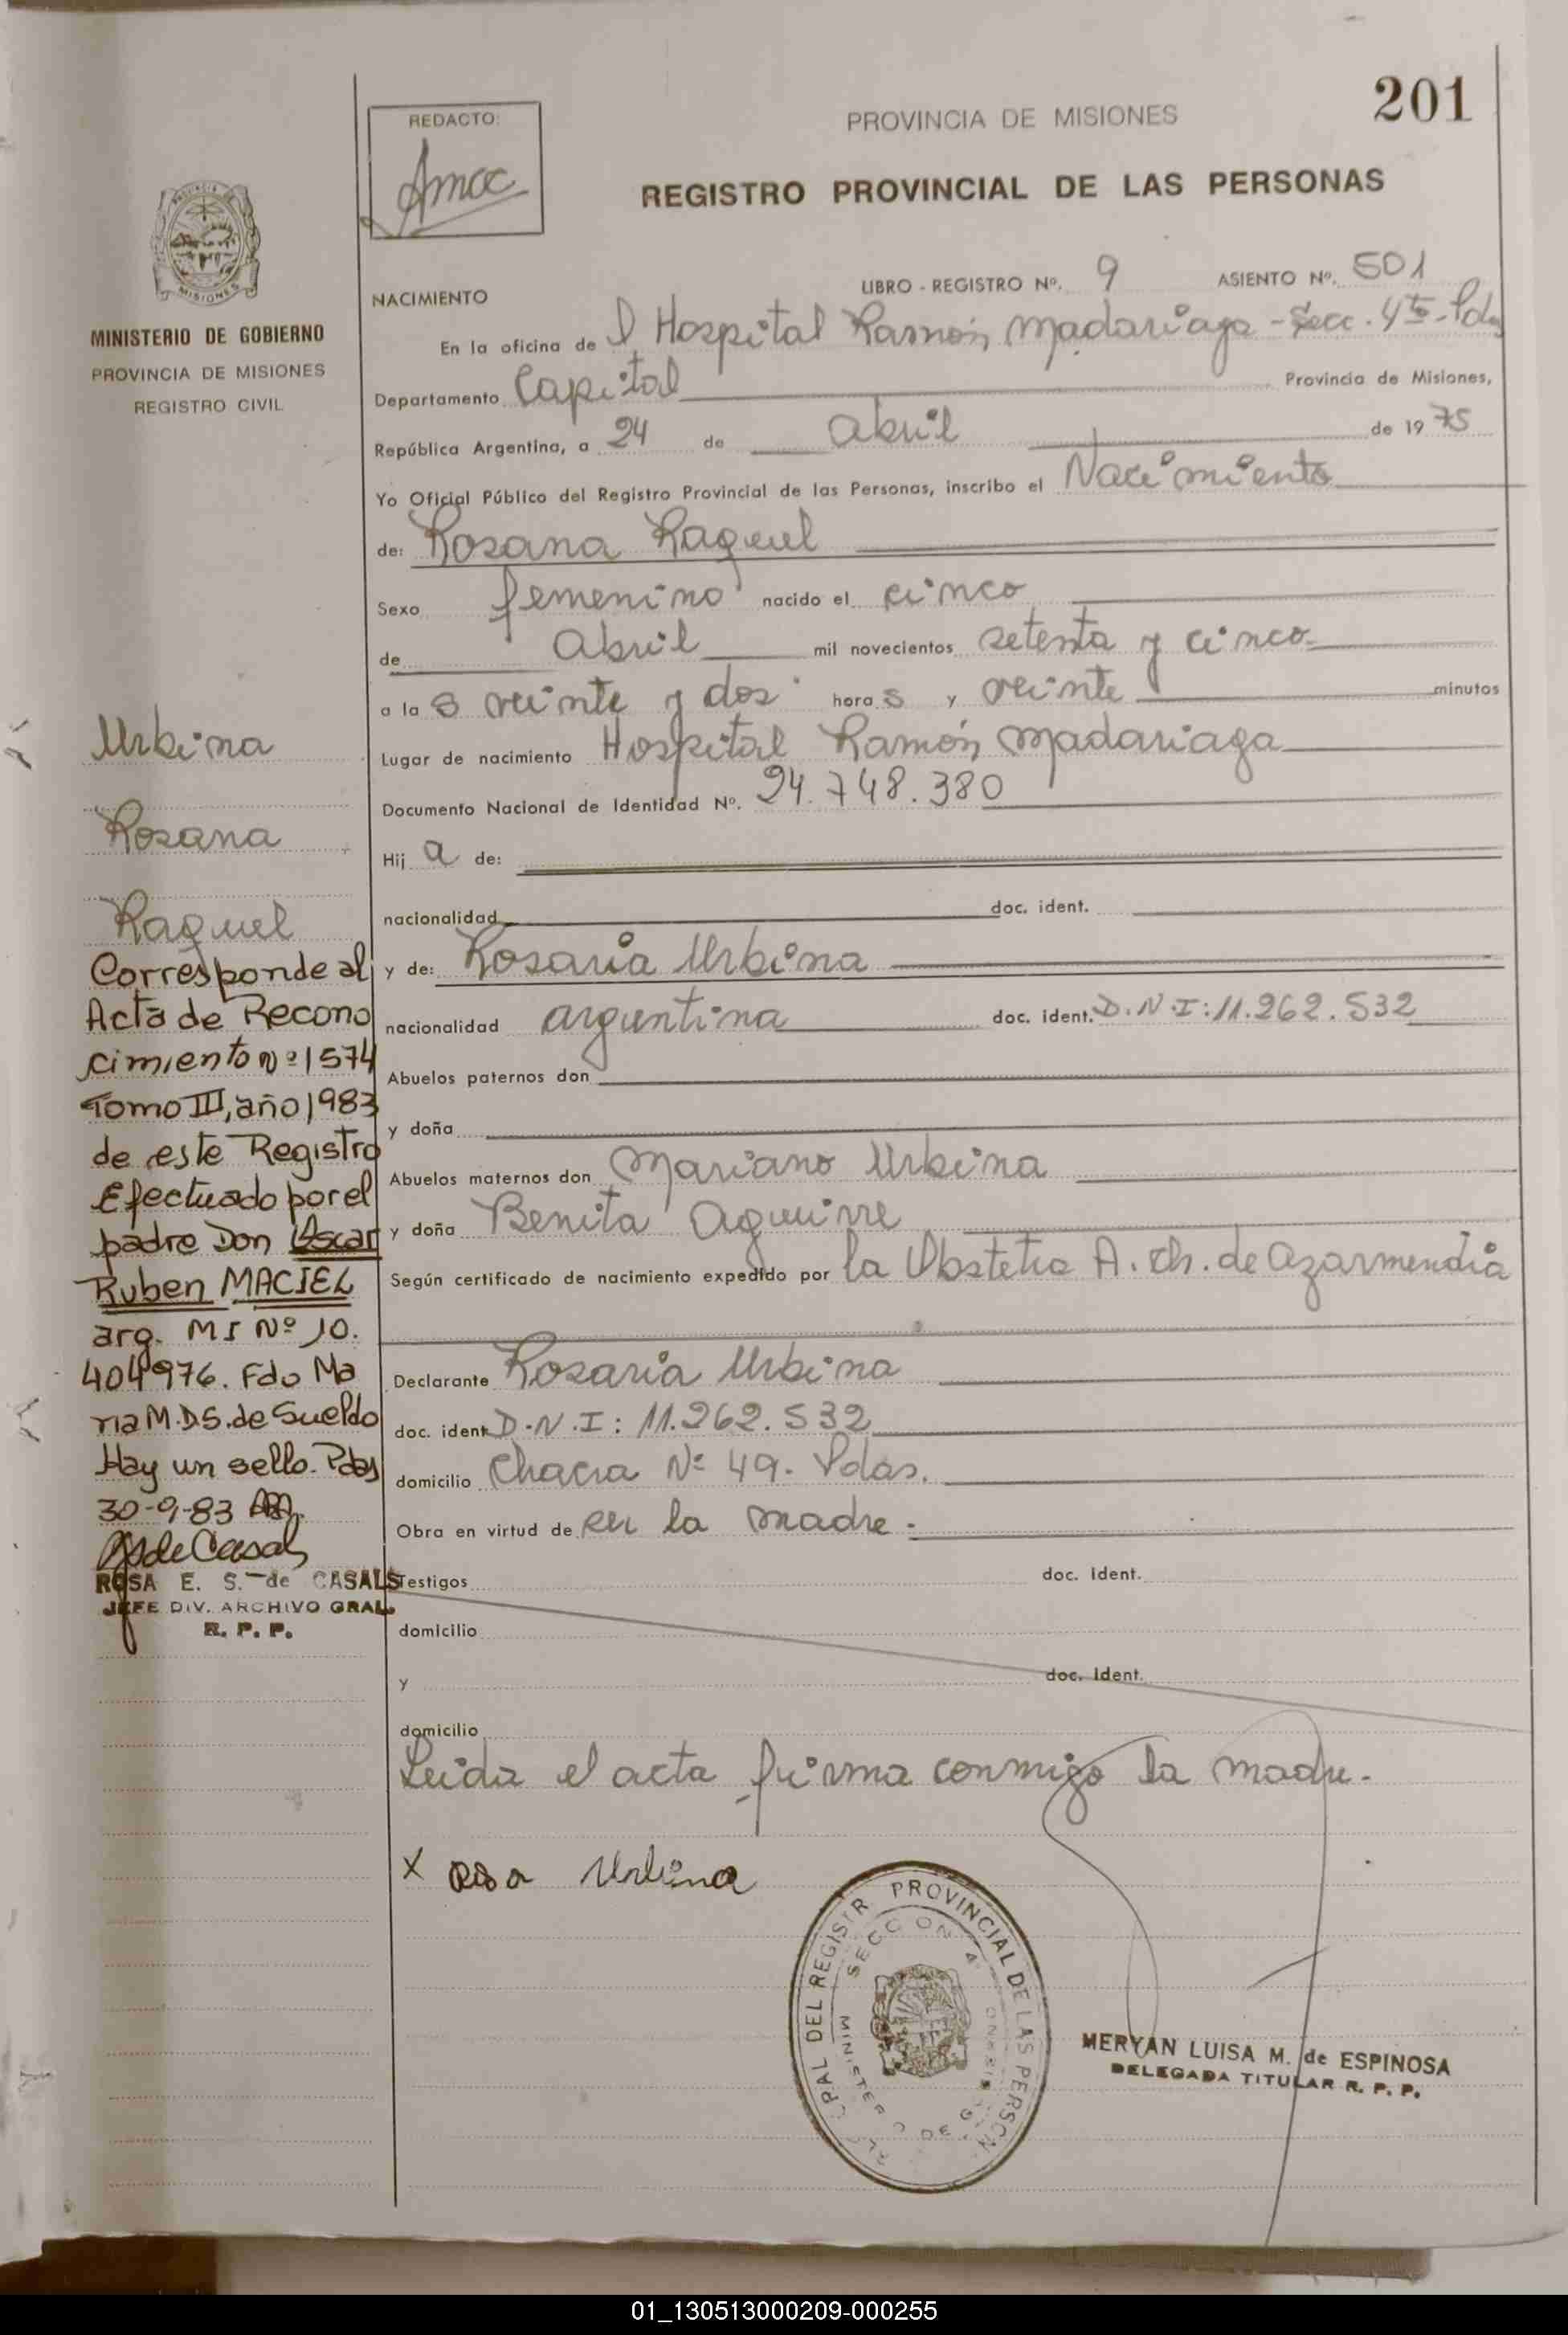 201
REDACTO:
PROVINCIA DE MISIONES
REGISTRO PROVINCIAL DE LAS PERSONAS
MISIONES
MINISTERIO DE GOBIERNO
PROVINCIA DE MISIONES
REGISTRO CIVIL
NACIMIENTO
LIBRO - REGISTRO Nº. 9 ASIENTO Nº. 501
En la oficina de l Hospital Ramón Madariaga - Secc. 4ta - Pdas
Departamento Capital Provincia de Misiones,
República Argentina, a 24 de abril de 1975
Yo Oficial Público del Registro Provincial de las Personas, inscribo el Nacimiento
de: Rosana Raquel
Sexo femenino nacido el cinco
de abril mil novecientos setenta y cinco
a la s veinte y dos hora s y veinte minutos
Lugar de nacimiento Hospital Ramón Madariaga
Documento Nacional de Identidad Nº. 24.748.380
Hij a de:
nacionalidad doc. ident.
y de: Rosaria Urbina
nacionalidad argentina doc. ident. D.N.I: 11.262.532
Abuelos paternos don
y doña
Abuelos maternos don Mariano Urbina
y doña Benita Aguirre
Según certificado de nacimiento expedido por la Obstetra A. Ch. de Azarmendia
Declarante Rosaria Urbina
doc. ident D.N.I: 11.262.532
domicilio Chacra Nº 49. Pdas.
Obra en virtud de ser la madre.
Testigos doc. Ident.
domicilio
y doc. Ident.
domicilio
Leida el acta firma conmigo la madre.
X Rosa Urbina
Urbina
Rosana
Raquel
Corresponde al
Acta de Recono
cimiento Nº 1574
Tomo III, año 1983
de este Registro
Efectuado por el
padre Don Oscar
Ruben MACIEL
arg. MI Nº 10.
404976. Fdo Ma
ria M.D.S. de Sueldo
Hay un sello. Pdas
30-9-83
RSdeCasals
ROSA E. S. de CASALS
JEFE DIV. ARCHIVO GRAL.
R. P. P.
PAL DEL REGISTR PROVINCIAL DE LAS PERSON
SECCION 4
MINISTER O DE G
MERYAN LUISA M. de ESPINOSA
DELEGADA TITULAR R. P. P.
01_130513000209-000255